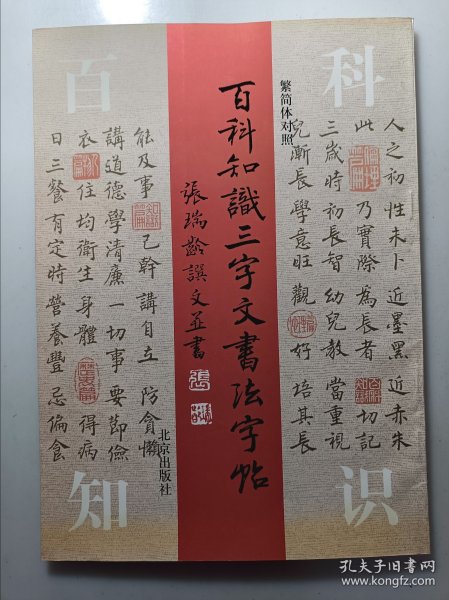 百科知識三字文書法字帖
張瑞齡譔文並書
繁简体对照
北京出版社
百科
知识
人之初 性未卜 近墨黑 近赤朱
此 乃實際 為長者 切記
三歲時 初長智 幼兒教 當重視
兒漸長 學意旺 觀 好 培其長
能及事 己幹 講自立 防貪懶
講道德 學清廉 一切事 要節儉
衣住均衛生 身體 得病
日三餐 有定時 營養豐 忌偏食
孔夫子旧书网
www.kongfz.com